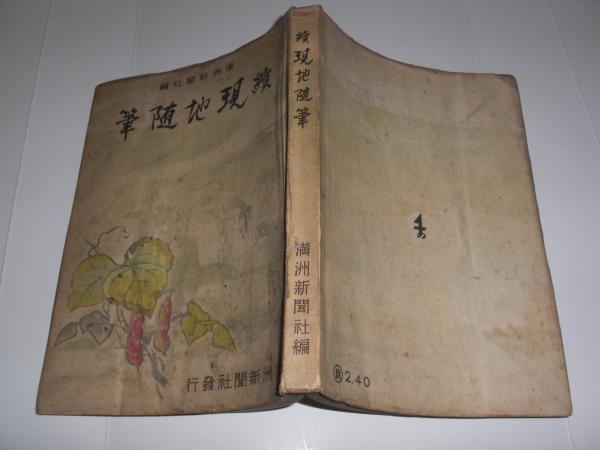 滿洲新聞社編
續現地随筆
洲新聞社發行
續現地随筆
満洲新聞社編
2.40